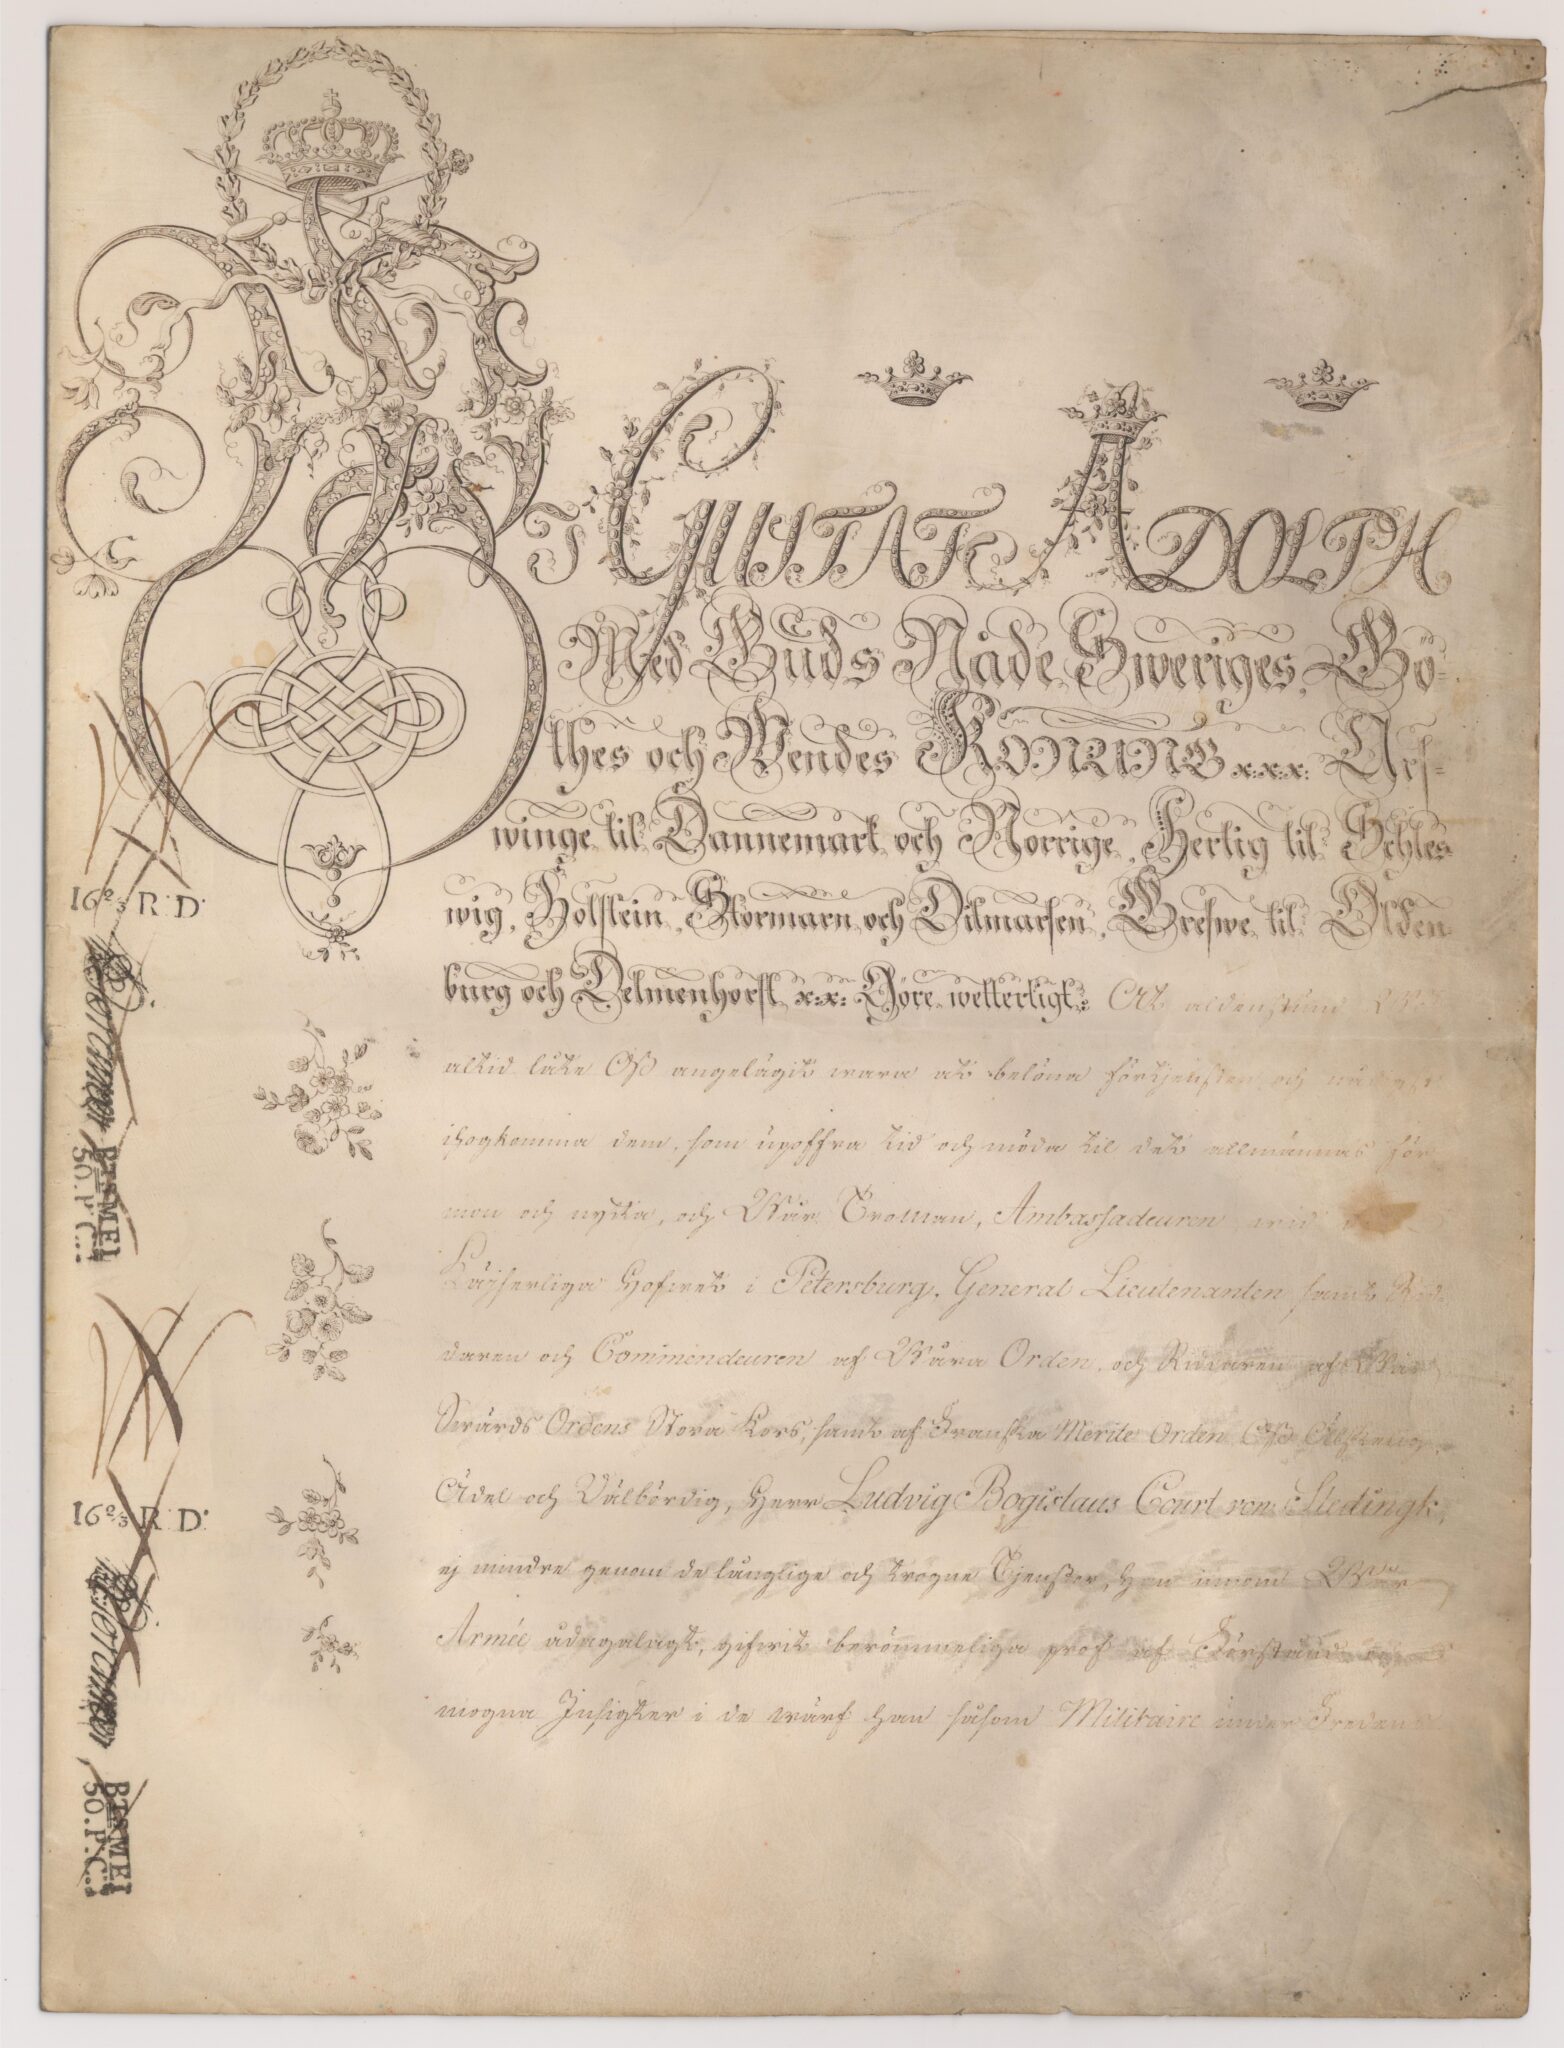 WI GUSTAF ADOLPH
Med Guds Nåde Sweriges, Gö-
thes och Wendes KONUNG x.x.x: Arf-
winge til Dannemark och Norrige, Hertig til Schles-
wig, Holstein, Stormarn och Ditmarsen, Grefwe til Olden-
burg och Delmenhorst x.x: Göre wetterligt: At aldenstund Wi
altid låte Oß angelägit wara at belöna förtjensten och
ihogkomma dem, som upoffra tid och möda til det allmännas för-
mon och nytta, och Wår Troman, Ambassadeuren wid
Käjserliga Hofwet i Petersburg, General Lieutenanten samt Rid-
daren och Commendeuren af Wåra Orden, och Riddaren af Wår
Swärds Ordens Stora Kors, samt af Franska Merite Orden Oß Älskelig,
Ädel och Välbördig, Herr Ludvig Bogislaus Court von Stedingk,
ej mindre genom de långlige och trogne Tjenster, han innom Wår
Armée ådagalagt, gifwit berömmeliga prof af Förstånd och
mogna Insigter i de wärf han såsom Militaire under Fredens
16 2/3 R: D:
50. P. C.
16 2/3 R: D:
50. P. C.